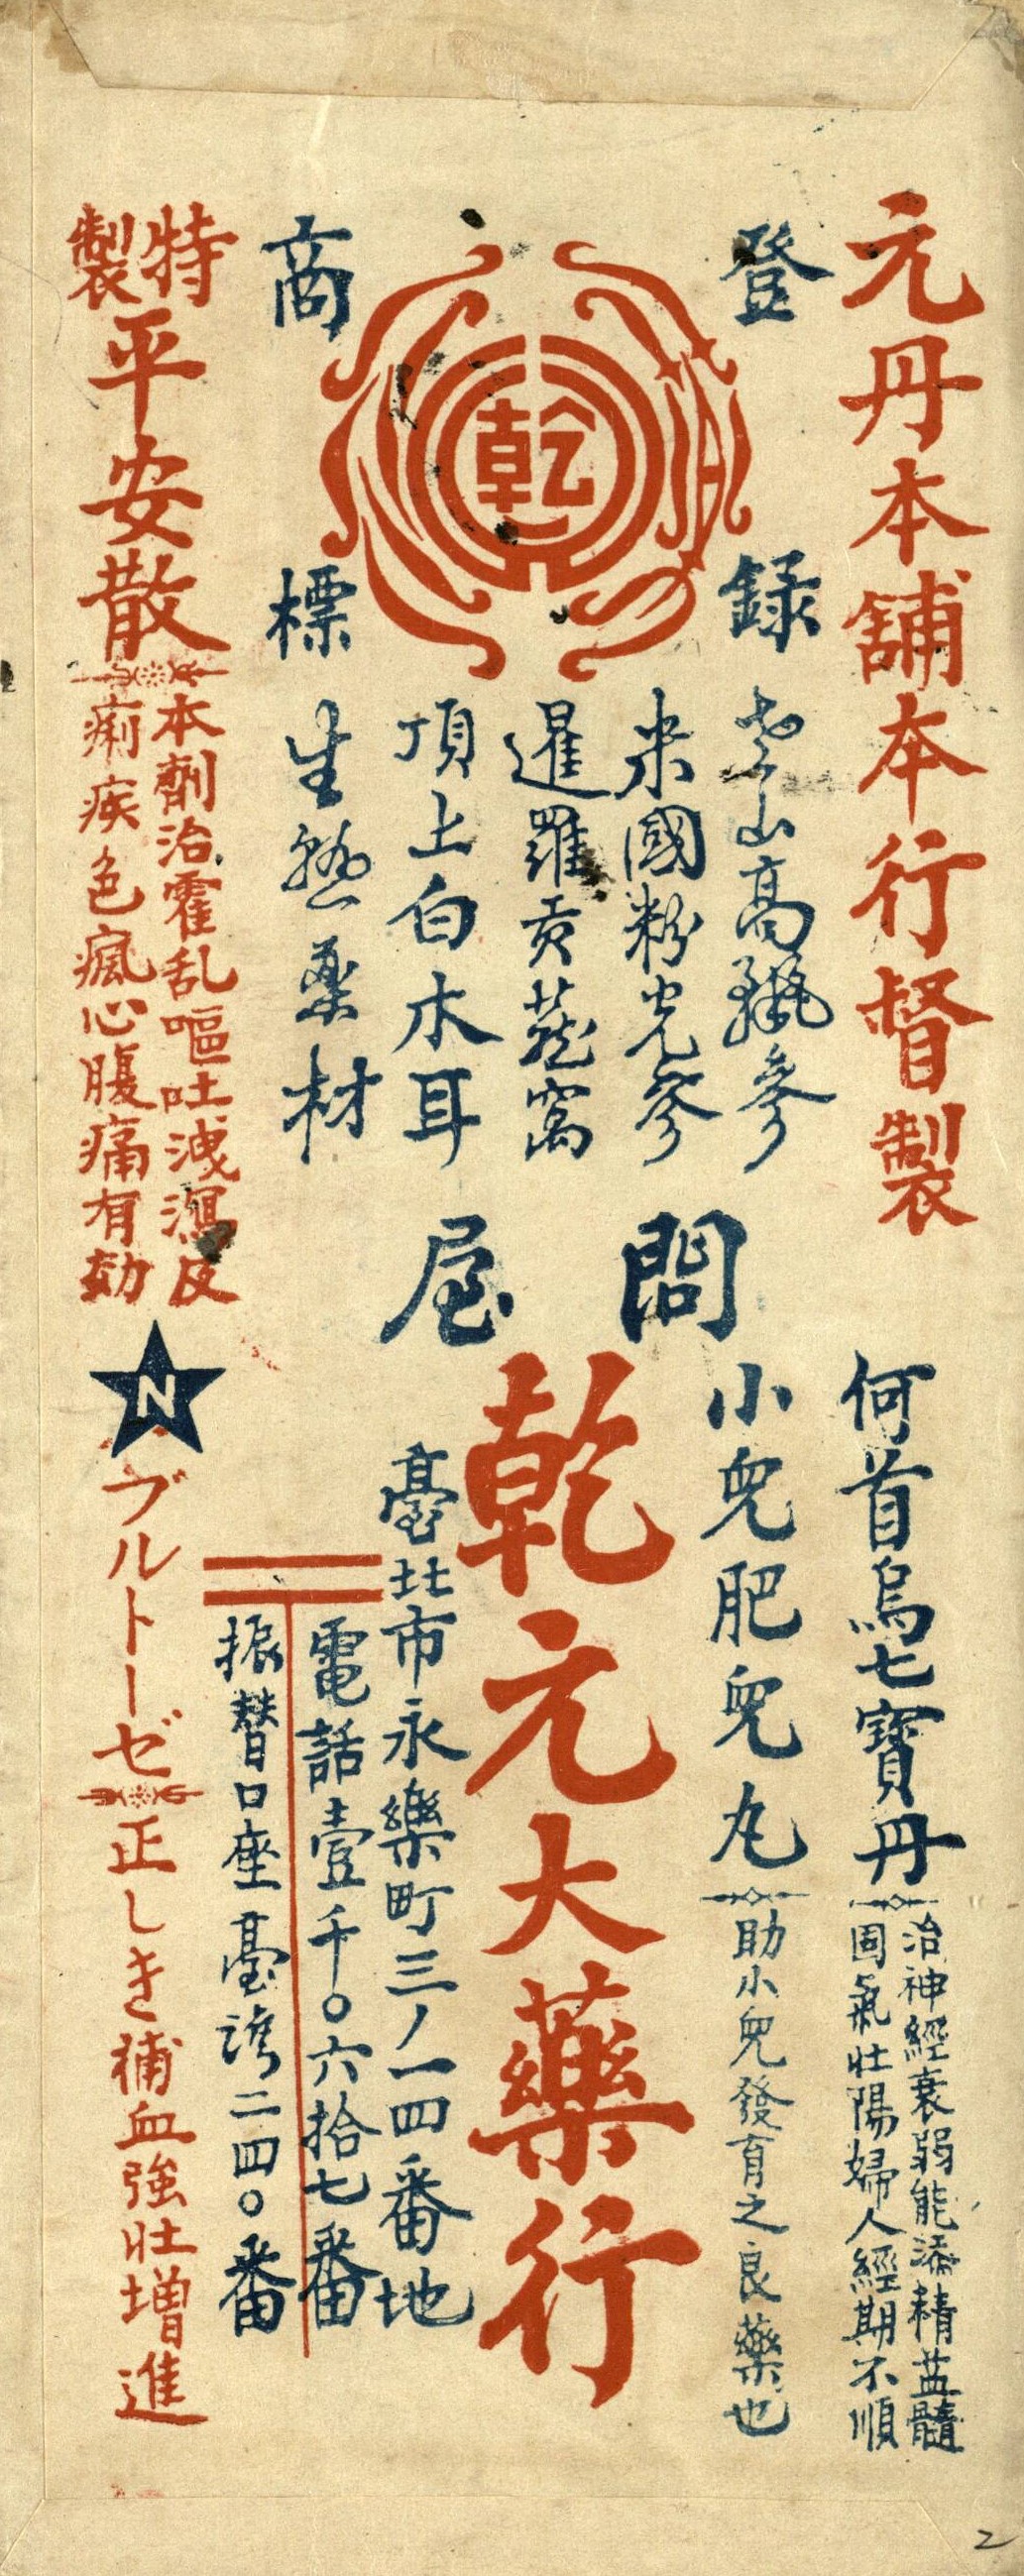 元丹本舖本行督製
登錄
商標
乾
老山高麗參
米國粉光參
暹羅貢燕窩
頂上白木耳
生熟藥材
問屋
何首烏七寶丹
治神經衰弱能添精益髓
固氣壯陽婦人經期不順
小兒肥兒丸
助小兒發育之良藥也
乾元大藥行
臺北市永樂町三ノ一四番地
電話壹千〇六拾七番
振替口座臺灣二四〇番
特製平安散
本劑治霍乱嘔吐洩瀉及
痢疾色瘋心腹痛有効
N
ブルトーゼ
正しき補血強壯増進
2